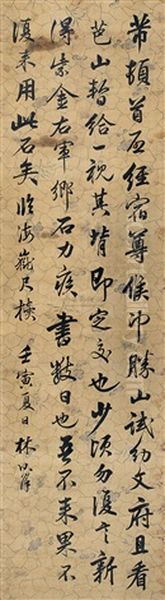 芾頓首啓經宿尊候冲勝山試納文府且看
芭山暫給一視其背即定交也少頃勿復言新
得紫金右軍鄉石力疾書數日也吾不來果不
復來用此石矣 臨海嶽尺牘 壬寅夏日 林